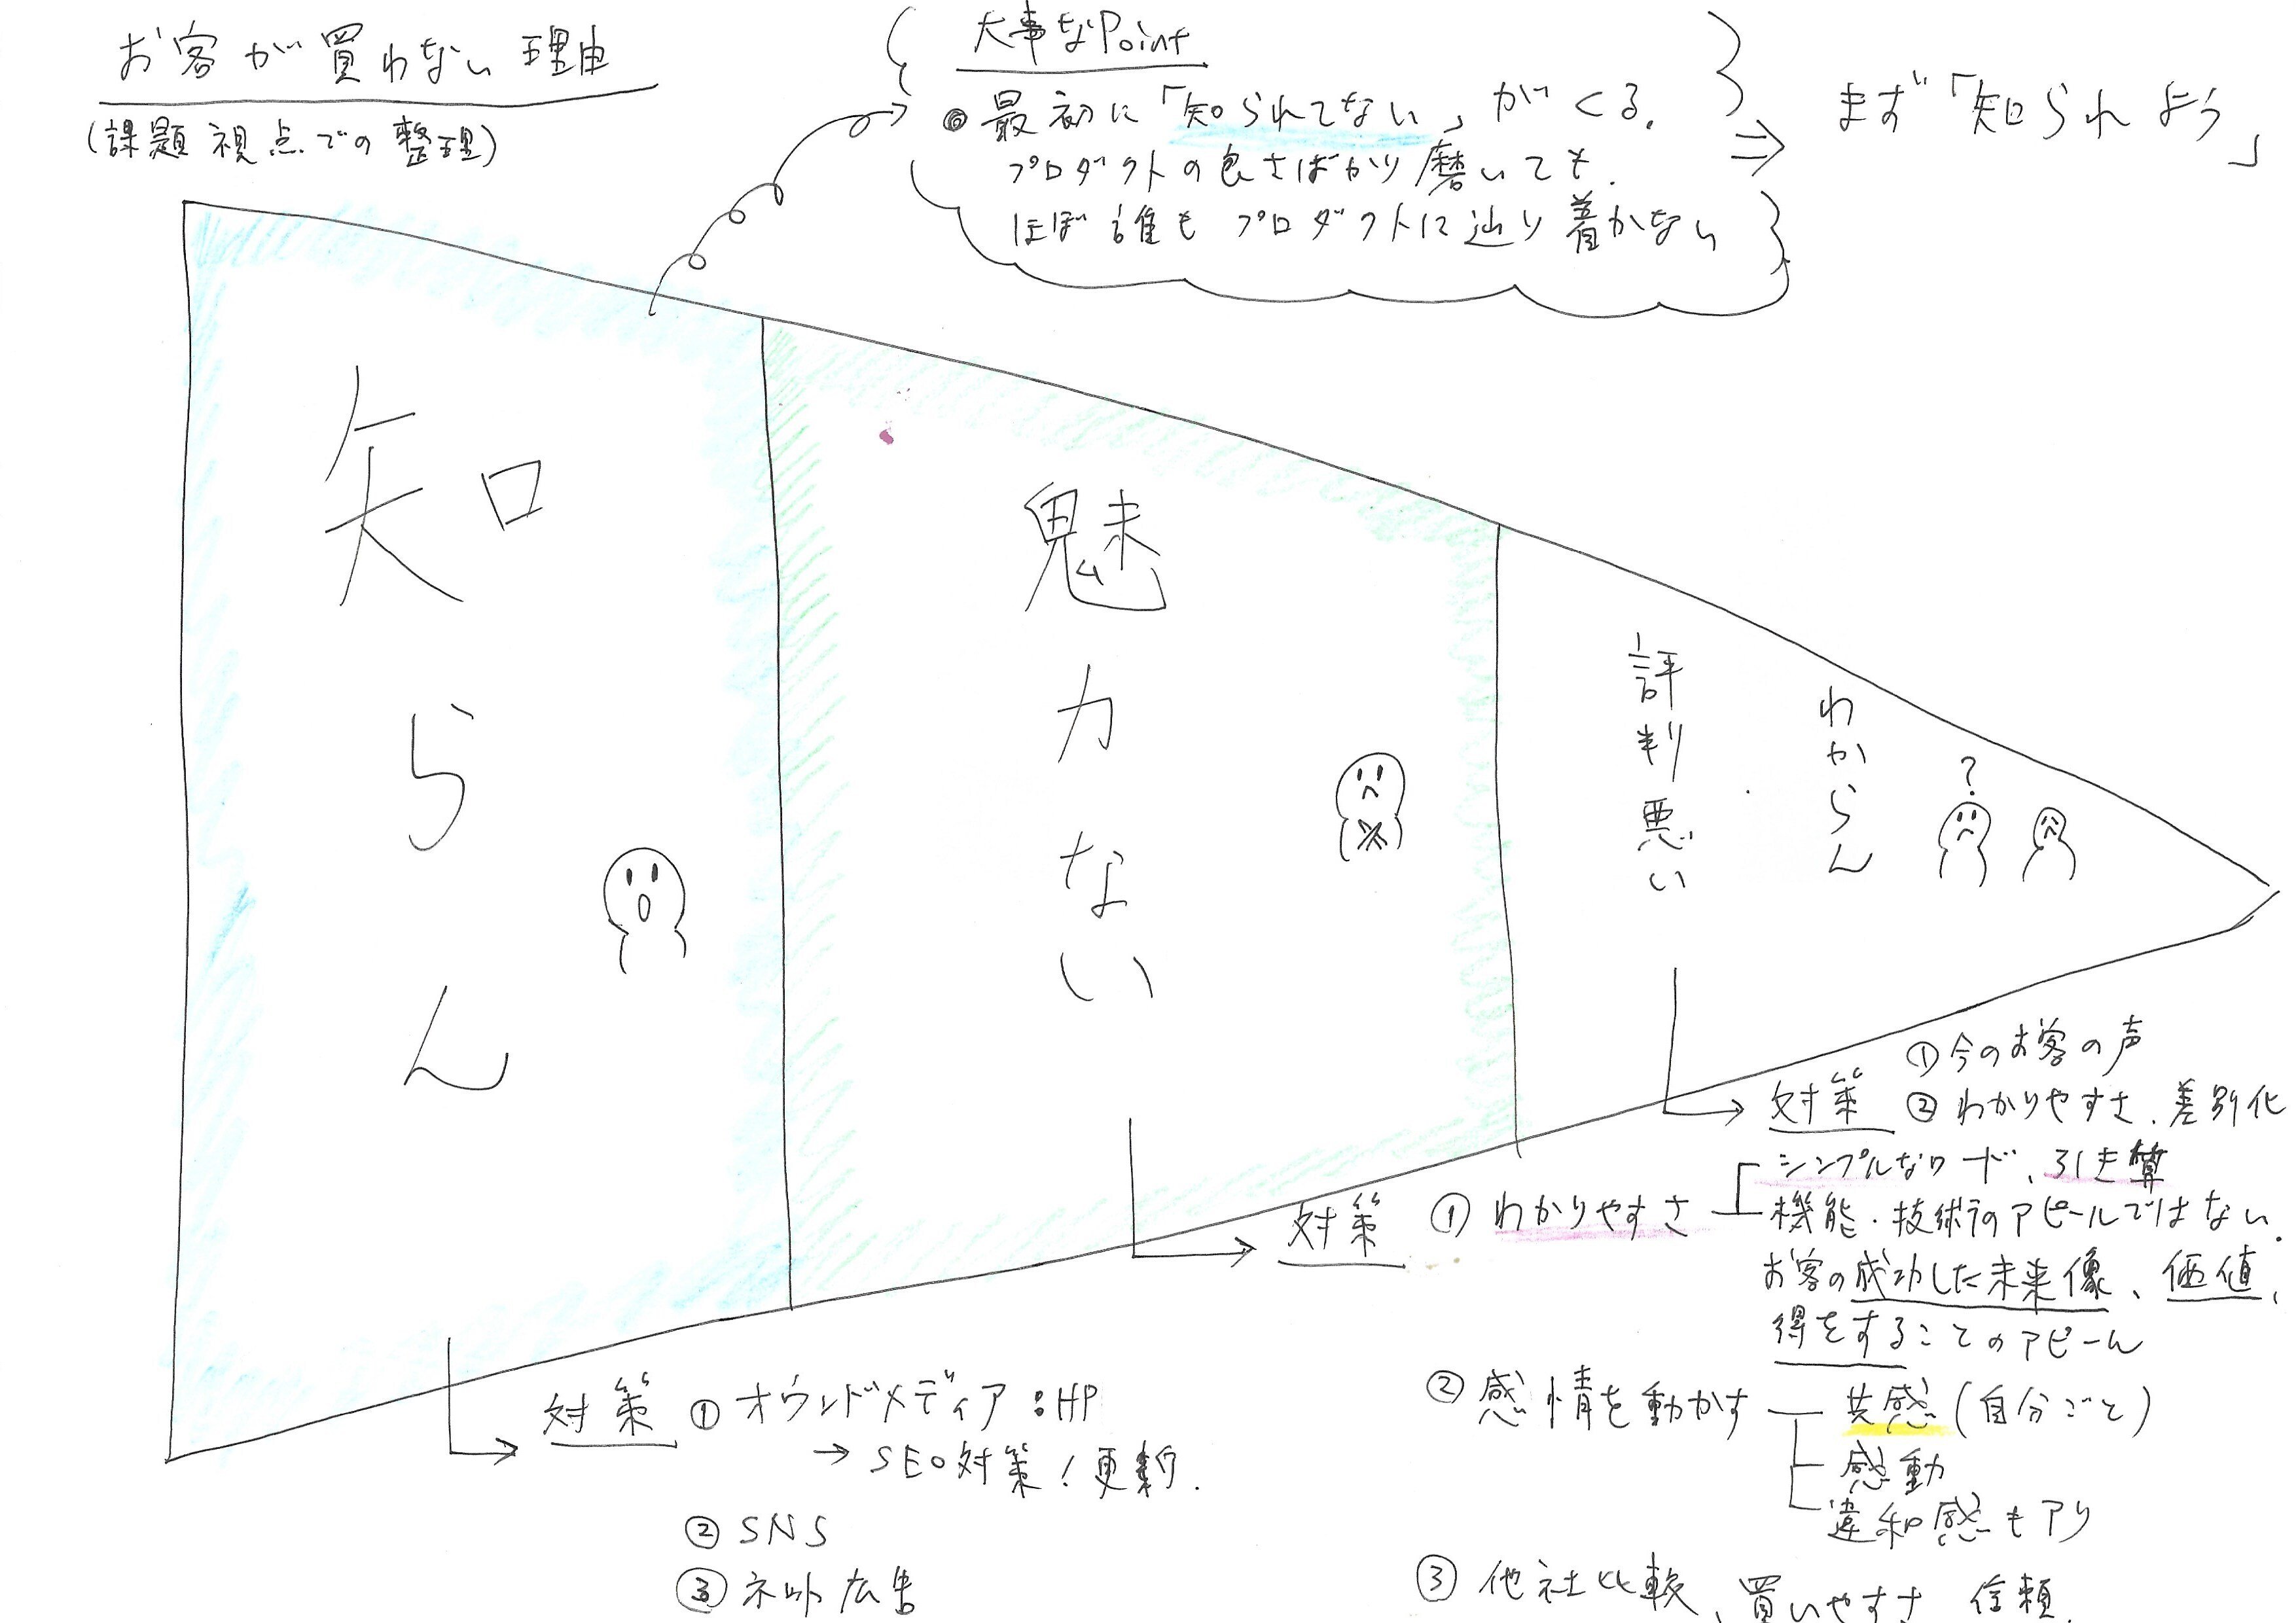 お客が買わない理由
(課題視点での整理)
大事なPoint
◎ 最初に「知られてない」がくる.
プロダクトの良さばかり磨いても.
ほぼ誰もプロダクトに辿り着かない
⇒ まず「知られよう」
知らん
魅力ない
評判悪い
わからん
?
対策 ① オウンドメディア:HP
→ SEO対策!更新.
② SNS
③ ネット広告
対策 ① わかりやすさ
シンプルなワード、引き算
機能・技術のアピールではない.
お客の成功した未来像、価値、
得をすることのアピール
② 感情を動かす
共感(自分ごと)
感動
違和感もアリ
③ 他社比較、買いやすさ 信頼.
対策 ① 今のお客の声
② わかりやすさ、差別化